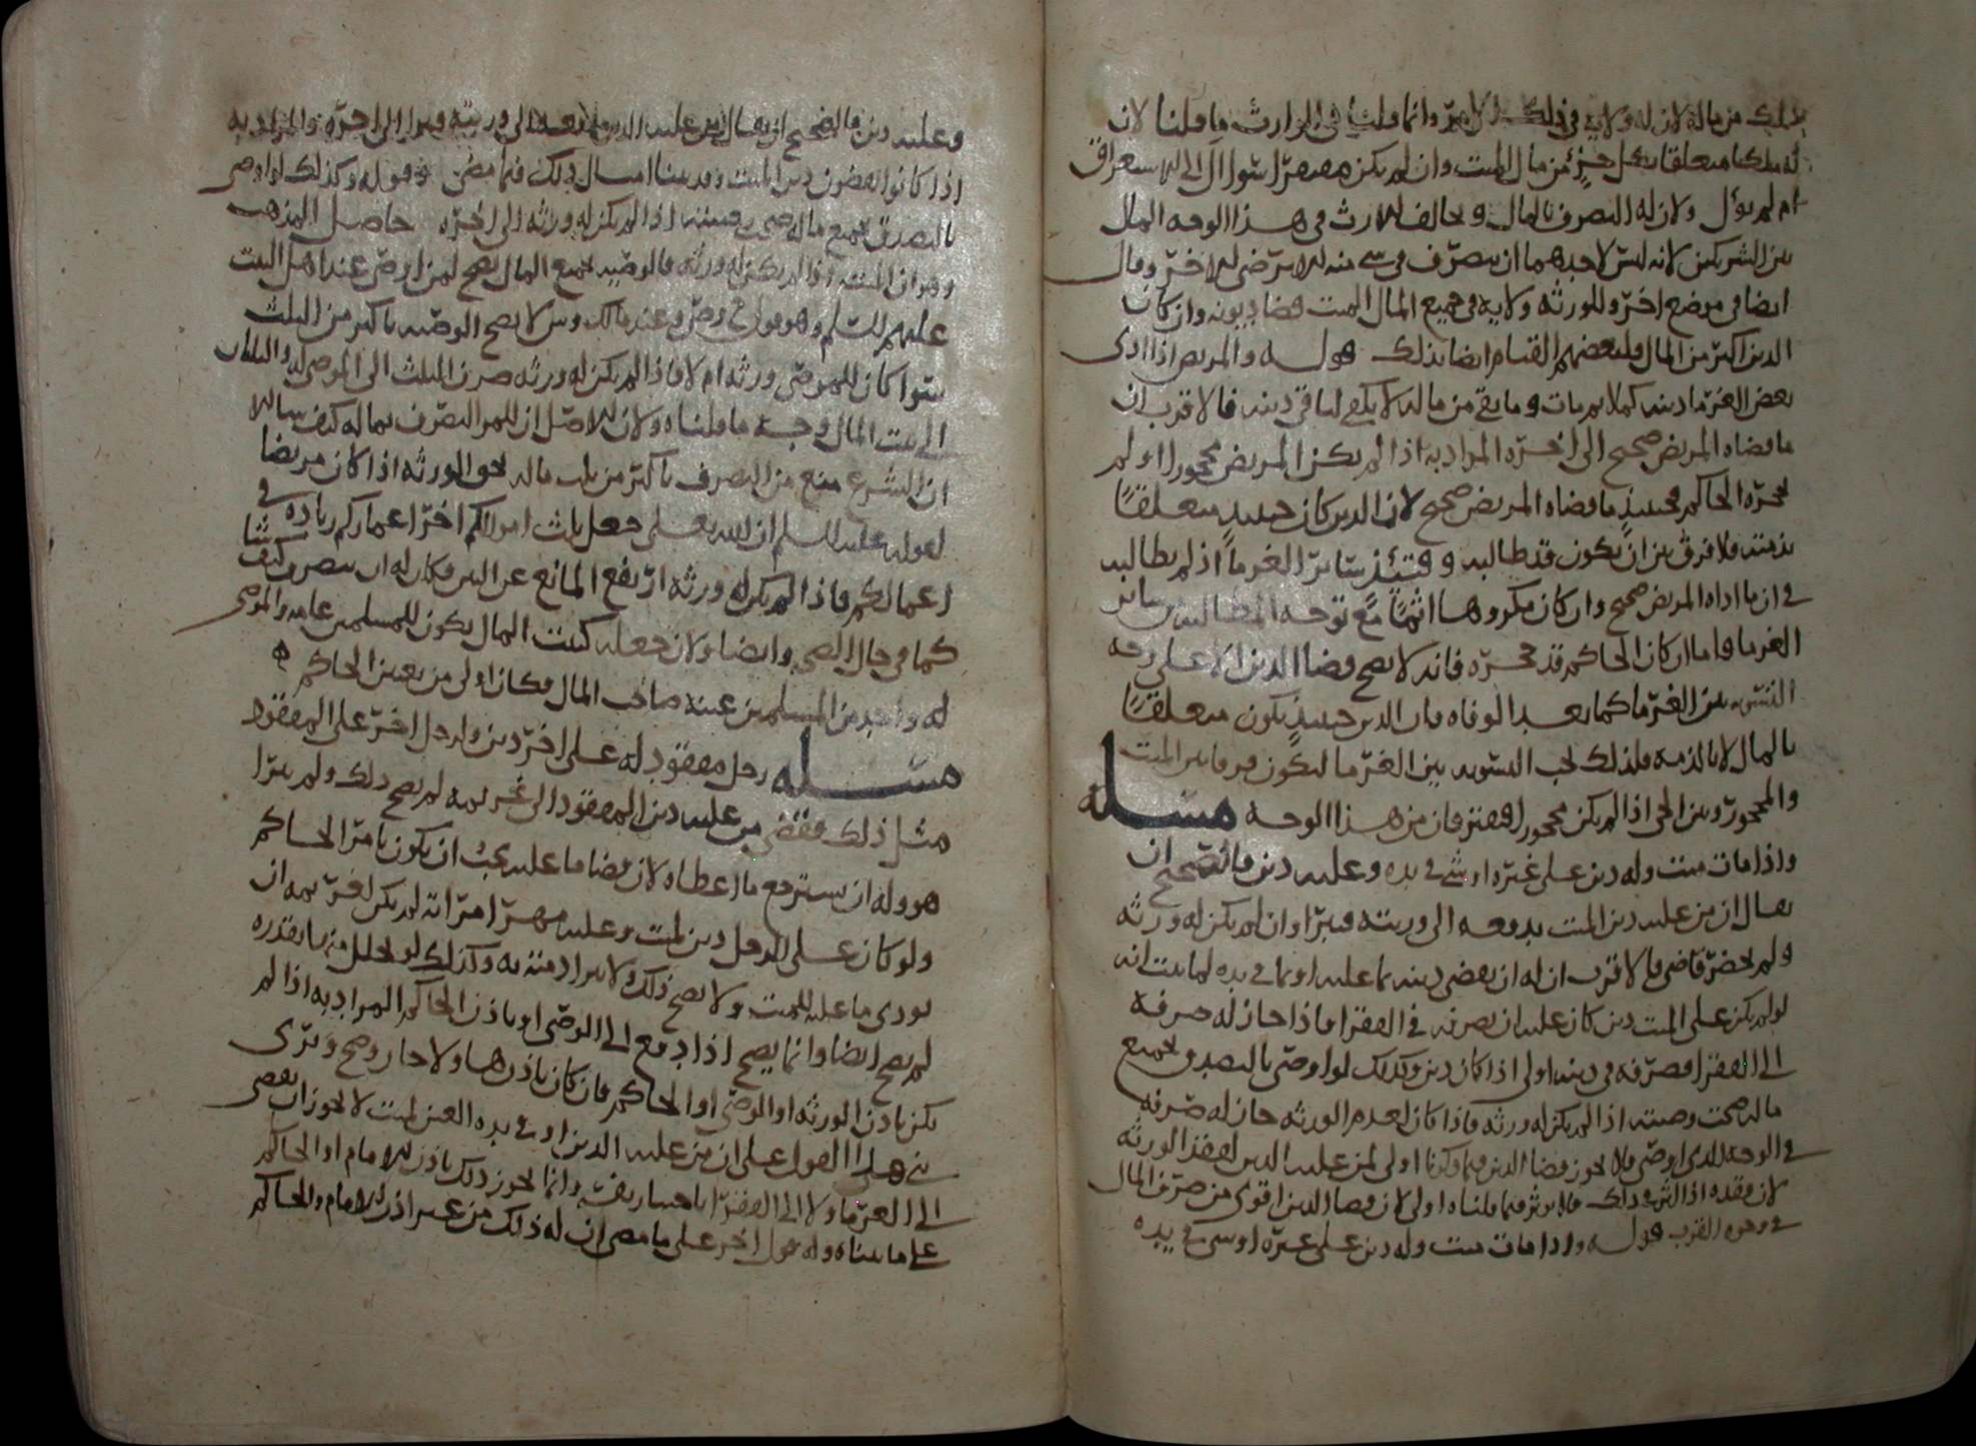 من ماله لان له ولاية في ذلك وانما قلنا في الوارث ما قلنا لان
له ملكا متعلقا بكل جزء من مال الميت وان لم يكن
ام لم يؤل ولان له التصرف بالمال ويخالف للارث في هذا الوجه المال
بين الشريكين لانه ليس لاحدهما ان يتصرف في شيء منه للا برضى للاخر وقال
ايضا في موضع اخر وللورثة ولاية في جميع المال الميت قضا ديونه وان كان
الدين اكثر من المال فلبعضهم القيام ايضا بذلك قوله والمريض اذا ادى
بعض الغرما دينه كملا ثم مات وما بقي من ماله لا يكفي لباقي دينه فالاقرب ان
ما قضاه المريض صحيح الى اخره المراد به اذا لم يكن المريض محجورا او لم
يحجره الحاكم فحينئذ ما قضاه المريض صحيح لان الدين كان حينئذ متعلقا
بذمته فلا فرق بين ان يكون قد طالبه وقتئذ سائر الغرما اذ لم يطالبه
في ان ما اداه المريض صحيح وان كان مكروها اثما مع توجه المطالبة سائر
الغرما فاما ان كان الحاكم قد حجره فانه لا يصح قضا الدين الا على وجه
التسوية بين الغرما كما بعد الوفاه فان الدين حينئذ يكون متعلقا
بالمال لا بالذمة فلذلك يجب التسوية بين الغرما ليكون فرقا بين الميت
والمحجور وبين الحي اذا لم يكن محجورا يفترقان من هذا الوجه مسله
واذا مات ميت وله دين على غيره او شي في يده وعليه دين فالصحيح ان
يقال ان من عليه دين الميت يدفعه الى ورثته فيبرا وان لم يكن له ورثة
ولم يحضر قاضي فالاقرب ان له ان يقضي دينه بما عليه او بما في يده لما ثبت انه
لو لم يكن على الميت دين كان عليه ان يصرفه في الفقرا فاذا جاز له صرفه
الى الفقرا فصرفه في دينه اولى اذا كان دين وكذلك لو اوصى بالتصدق بجميع
ماله صحت وصيته اذا لم يكن له ورثة فاذا كان لعدم الورثة جاز له صرفه
في الوجه الذي اوصى فلا يجوز قضا الدين اولى لمن عليه الدين لفقد الورثة
لان فقده اذا اثر في ذلك فلان يؤثر فيما قلناه اولى لان قضا الدين اقوى من صرف المال
في وجوه القرب قوله واذا مات ميت وله دين على غيره او شي في يده
وعليه دين فالصحيح ان يقال من عليه الدين يدفعه الى ورثته ويبرا الى اخره والمراد به
اذا كانوا يقضون دين الميت وقد بينا امثال ذلك فيما مضى وقوله وكذلك لو اوصى
بالتصدق بجميع ماله صحت وصيته اذا لم يكن له ورثة الى اخره حاصل المذهب
وهو ان الميت اذا لم يكن له ورثة فالوصية بجميع المال تصح لمن اوصى عند اهل البيت
عليهم السلم وهو قول وعند مالك و لا يصح الوصية باكثر من الثلث
سوا كان للموصي ورثة ام لا فاذا لم يكن له ورثة صرف الثلث الى الموصى له والثلثان
الى بيت المال وجه ما قلناه ولان للاصل ان للمر التصرف بماله كيف شا الا
ان الشرع منع من التصرف باكثر من ثلث ماله لحق الورثة اذا كان مريضا
لقوله عليه السلم ان الله تعلى جعل ثلث اموالكم اخر اعماركم زيادة في
اعمالكم فاذا لم يكن له ورثة ارتفع المانع عن الثلثين فكان له ان يتصرف كيف شا
كما في حال الصحة وايضا ولان جعله كبيت المال يكون للمسلمين عامة والموصى
له واحد من المسلمين عينه صاحب المال فكان اولى من تعيين الحاكم ه
مسله رجل مفقود له على اخر دين ولرجل اخر على المفقود
مثل ذلك فقضى من عليه دين المفقود الى غريمه لم يصح ذلك ولم يبرا
هو وله ان يسترجع ما اعطاه لان قضا ما عليه يجب ان يكون بامر الحاكم
ولو كان على الرجل دين لميت وعليه مهر امراته لم يكن لغريمه ان
يودي ما عليه للميت ولا يصح ذلك ولا يبرا ذمته به وكذلك لو تحلل منها بقدره
لم يصح ايضا وانما يصح اذا دفع الى الوصي او باذن الحاكم المراد به اذا لم
يكن باذن الورثة او الوصي او الحاكم فان كان باذن هاولا جاز وصح وترى
بني هذا القول على ان من عليه الدين او في يده العين لميت لا يجوز ان يقضي
الى الغرما ولا الى الفقرا باختيار نفسه وانما يجوز ذلك باذن للامام او الحاكم
على ما بيناه وله قول اخر على ما مضى ان له ذلك من غير اذن للامام والحاكم